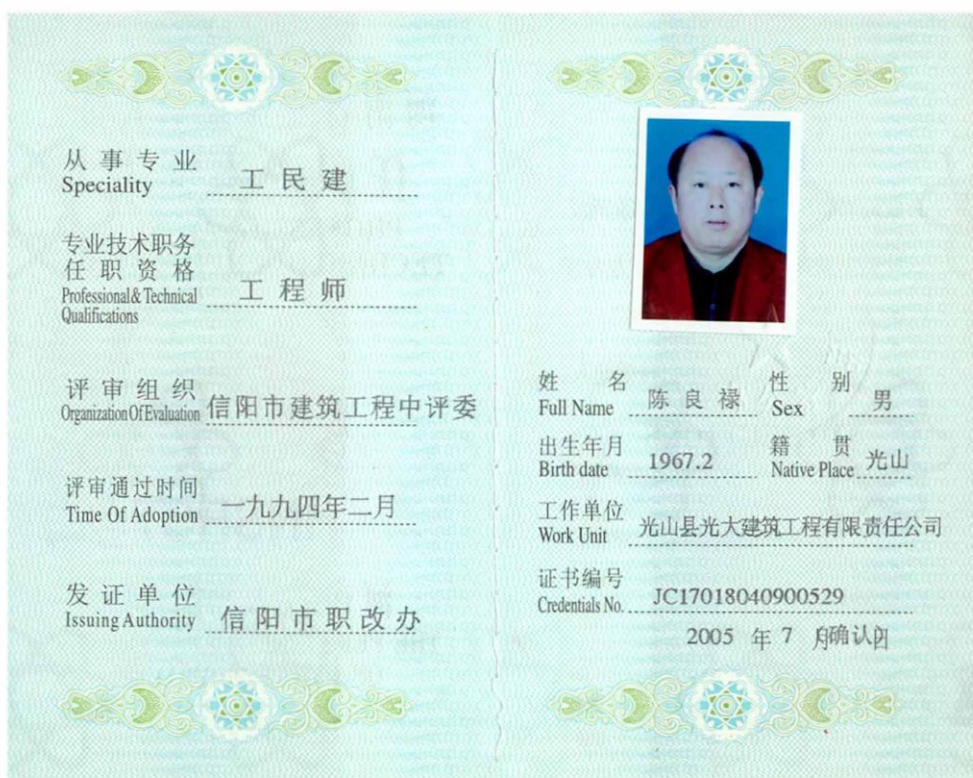 从事专业
Speciality 工民建
专业技术职务
任职资格
Professional & Technical
Qualifications 工程师
评审组织
Organization Of Evaluation 信阳市建筑工程中评委
评审通过时间
Time Of Adoption 一九九四年二月
发证单位
Issuing Authority 信阳市职改办
姓名 性别
Full Name 陈良禄 Sex 男
出生年月 籍贯
Birth date 1967.2 Native Place 光山
工作单位
Work Unit 光山县光大建筑工程有限责任公司
证书编号
Credentials No. JC17018040900529
2005 年 7 月确认